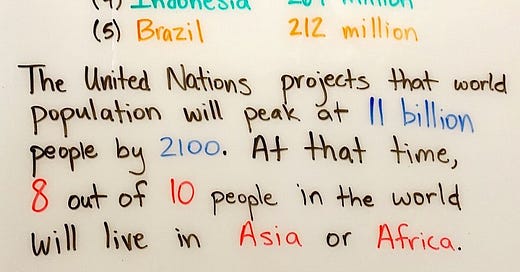 (4) Indonesia 264 million
(5) Brazil 212 million
The United Nations projects that world
population will peak at 11 billion
people by 2100. At that time,
8 out of 10 people in the world
will live in Asia or Africa.